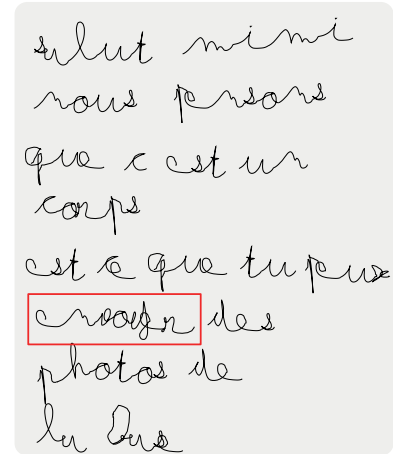 salut mimi
nous pensons
que c est un
corps
est ce que tu peux
des
photos de
la